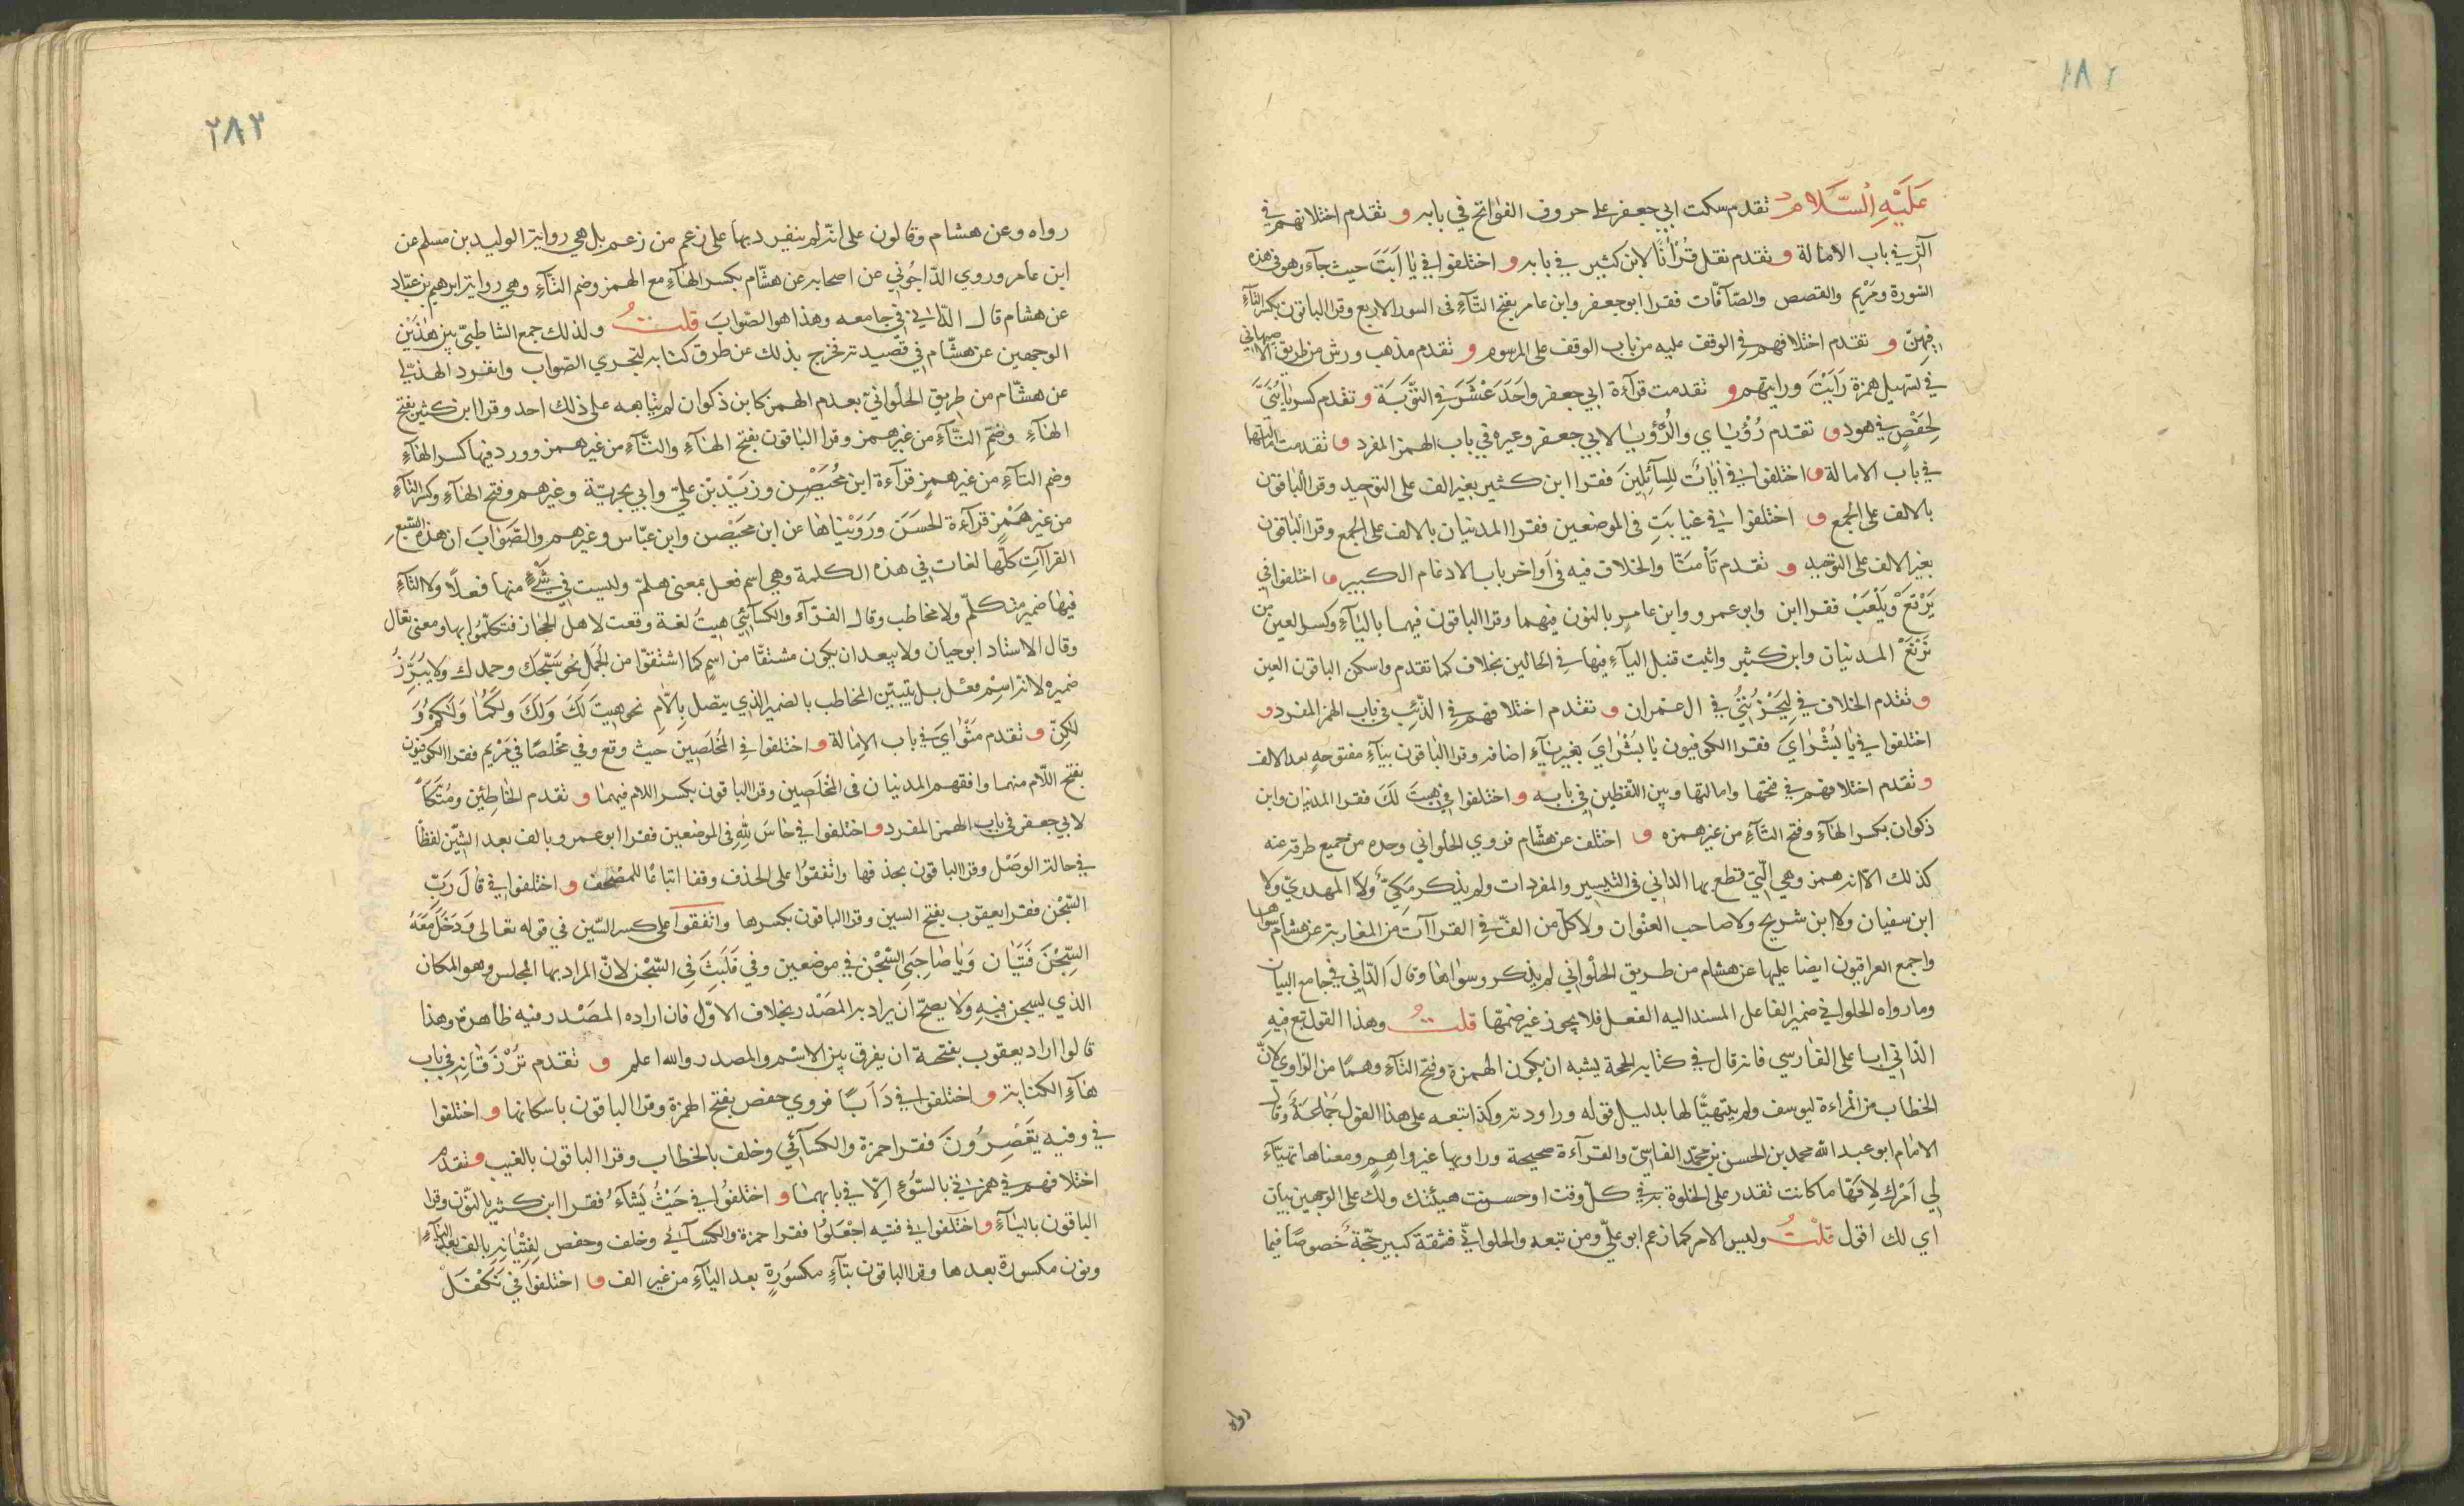 ١٨٢
عَلَيْهِ السَّلَام تقدم سكت ابي جعفر على حروف الفواتح في بابه و تقدم اختلافهم في
الٓرٰ في باب الامالة و تقدم نقل قُرْأٰنًا لابن كثير في بابه و اختلفوا في يٰا اَبَتَ حيث جآء وهو في هذه
السّورة ومَرْيم والقصص والصّآفّات فقرا ابو جعفر وابن عامر بفتح التّآءِ في السور الاربع وقرا الباقون بكسر التآءِ
فيهنّ و تقدم اختلافهم في الوقف عليه من باب الوقف على المرسوم و تقدم مذهب ورش من طريق الاصبهاني
في تسهيل همزة رَاَيْتَ ورايتهم و تقدمت قرآءة ابي جعفر واَحَدَ عْشَرَ في التّوبَة و تقدم كسر يٰا بُنَيَّ
لِحَفْصٍ في هود و تقدم رُؤْيٰاي والرُّؤْيٰا لابي جعفر وغيره في باب الهمز المفرد و تقدمت امالتها
في باب الامالة و اختلفوا في اٰيٰاتٌ لِلسّآئِلِينَ فقرا ابن كثير بغير الف على التوحيد وقرا الباقون
بالالف على الجمع و اختلفوا في غيابَتِ في الموضعين فقرا المدنيان بالالف على الجمع وقرا الباقون
بغير الالف على التوحيد و تقدم تَأْمَنّٰا والخلاف فيه في اَواخر باب الادغام الكبير و اختلفوا في
يَرْتَعْ وَيَلْعَبْ فقرا ابن وابو عمرو وابن عامرٍ بالنون فيهما وقرا الباقون فيهما باليٰآءِ وكسر العين من
نَرْتَعْ المدنيان وابن كثير واثبت قنبل اليآء فيها في الحالين بخلاف كما تقدم واسكن الباقون العين
و تقدم الخلاف في لِيَحْزُنُنِي في ال عمران و تقدم اختلافهم في الذّئِبِ في باب الهمز المفرد و
اختلفوا في يٰا بُشْرٰايَ فقرا الكوفيون يٰا بُشْرٰايَ بغير يٰآءِ اضافه وقرا الباقون بيٰآءِ مفتوحهٍ بعد الالف
و تقدم اختلافهم في فتحها وامالتها وبين اللفظين في بابه و اختلفوا في هيتَ لَكَ فقرا المدنيان وابن
ذكوان بكسر الهآءِ وفتح التآءِ من غير همزه و اختلف عن هشّام فروي الحلواني وحده من جميع طرقه عنه
كذلك الا انه همز وهي الّتي قطع بها الداني في التيسير والمفردات ولم يذكر مَكيّ ولا المهدويّ ولا
ابن سفيان ولا ابن شريح ولا صاحب العنْوان ولا كلّ من الفّ في القراآت من المغاربة عن هشام سواها
واجمع العراقيون ايضا عليها عن هشام من طريق الحلواني لم يذكروا سواها وقالَ الدّاني في جامع البيان
وما رواه الحلواني في ضمير الفاعل المسند اليه الفعل فلا يجوز غير ضمّها قلتُ وهذا القول تبع فيه
الدّاني ابا على الفارسي فانه قال في كتابه الحجة يشبه ان يكون الهمزة وفتح التآءِ وهمًا من الرّاوي لانّ
الخطاب من المرأة ليوسف ولم يتهيّأ لها بدليل قوله وراودته وكذا تبعه على هذا القول جَمٰاعَةٌ وقال
الامام ابو عبد الله محمد بن الحسن بن محمّد الفاسيّ والقرآءة صحيحة وراويها غير واهِمٍ ومعناها تهيّآء
لي اَمْرك لِاَنّها ما كانت تقدر على الخلوة به في كلّ وقت او حسنت هيئتك ولك على الوجهين بيان
اي لك اقول قلْتُ وليس الامر كما زعم ابو عليّ ومن تبعه والحلوانيّ فثقة كبير حجّة خصوصًا فيما
رواه
٢٨٣
رواه وعن هشام وقالون على انّه لم ينفرد بها على زعم من زعم بل هي رواية الوليد بن مسلم عن
ابن عامر وروي الدّاجُوني عن اصحابه عن هشّام بكسر الهآءِ مع الهمز وضم التّآءِ وهي رواية ابرهيم بن عبّاد
عن هشام قال الدّاني في جامعه وهذا هو الصّوابَ قلتُ ولذلك جمع الشاطبيّ بين هٰذَيْن
الوجهين عن هشّام في قصيدته فخرج بذلك عن طرق كتابه لتحري الصّواب وانفرد الهذلي
عن هشّام من طريق الحلواني بعدم الهمز كابن ذكوان لم يتابعه على ذلك احد وقرا ابن كثير بفتح
الهٰآءِ وضمّ التّآءِ من غير همز وقرا البٰاقون بفتح الهٰآءِ والتّآءِ من غير همز وورد فيها كسر الهآءِ
وضم التآءِ من غير همزٍ قرآءة ابن مُحَيْصِن وزَيْد بْن عليّ وابي بحريّة وغيرهم وفتح الهآءِ وكسر التآءِ
من غير هَمْزٍ قرآءة الحسَن وَرَوَيْنٰاهٰا عن ابن محَيْصن وابن عبّاس وغيرهم والصَّوٰابَ ان هذه السّبع
القراآتِ كلّها لغات في هذه الكلمة وهي اسم فعل بمعنى هلمّ وليست في شَيْءٍ منها فعلًا ولا التآءِ
فيهٰا ضمير متكلّم ولا مخاطب وقال الفرّآء والكسآئي هيتُ لغة وقعت لاهل الحجاز فتكلّمُوا بها ومعنى تعال
وقال الاستاد ابو حيان ولا يبعد ان يكون مشتقا من اسمٍ كما اشتقوّا من الجُمَل نحو سَبّحَك وحمدك ولا يُبَرَّزُ
ضميره لانه اسِم فعْل بل يتبيّن المخاطب بالضمير الذي يتصل بِاللّام نحو هيتَ لَكَ وَلَكَ ولكُمٰا وَلَكُمْ وَ
لكنّ و تقدم مَثْوٰايَ في باب الامالة و اختلفوا في المُخْلَصِين حيث وقع وفي مخْلصًا في مَرْيم فقرا الكوفيون
بفتح اللّام منهما وافقهم المدنيان في المُخْلَصِين وقرا الباقون بكسر اللام فيهمٰا و تقدم الخاطِئين ومُتّكَأً
لابي جعفر في باب الهمز المفرد و اختلفوا في حٰاشَ لِلّهِ في الموضعين فقرا ابو عمرو بالف بعد الشّين لفظًا
في حالة الوَصْل وقرا الباقون بحذفها واتّفقوُا على الحذف وقفا اتباعًا للمصْحف و اختلفوا في قالَ رَبِّ
السِّجْن فقرا يعقوب بفتح السين وقرا الباقون بكسرها واتّفقوا على كسر السّين في قوله تعالى وَدَخَلَ مَعَهُ
السِّجْنَ فَتَيٰان وَيٰا صٰاحِبَيِ السِّجْن في موضعين وفي فَلَبِثَ في السِّجْن لانّ المراد بها المجلس وهو المكان
الذي ليسجن فيهِ ولا يصحّ ان يراد به المَصْدَر بخلاف الاوّل فان اراده المصْدر فيه ظاهرة وهذا
قالوا اراد يعقوب بفتحة ان يفرق بين الاسْم والمصدر والله اعلم و تقدم تُرْزَقٰانِه في باب
هٰآءِ الكناية و اختلفوا في دَأَبًا فروي حفص بفتح الهمزة وقرا الباقون باسكانها و اختلفوا
في وفيه يَعْصِرُونَ فقرا حمزة والكسآئي وخلف بالخطاب وقرا الباقون بالغيب و تقدم
اختلافهم في همزتي بالسّوُءِ اِلّا في بابهمٰا و اختلفُوا في حَيْثُ يَشٰآءُ فقرا ابن كثير بالنّون وقرا
الباقون باليآءِ و اختلفوا في فتيه اجْعَلوُا فقرا حمزة والكسآئي وخلف وحفص لِفِتْيٰانِهِ بالف بعد اليآءِ
ونون مكسورة بعدها وقرا الباقون بتآءِ مكسُورَةٍ بعد اليٰآءِ من غير الف و اختلفوا في نَكْتَلْ